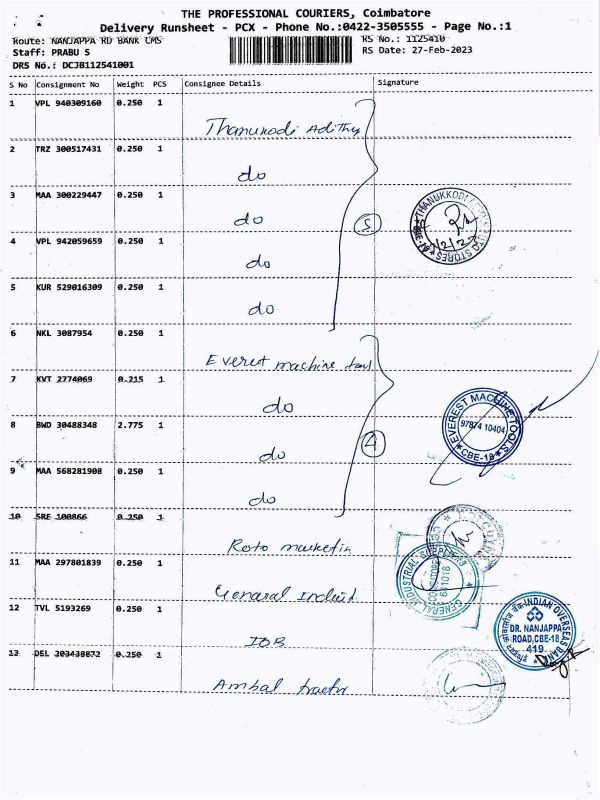 THE PROFESSIONAL COURIERS, Coimbatore
Delivery Runsheet - PCX - Phone No.:0422-3505555 - Page No.:1
Route: NANJAPPA RD BANK CMS
RS No.: 1125410
Staff: PRABU S
RS Date: 27-Feb-2023
DRS No.: DCJB112541001
S No Consignment No Weight PCS Consignee Details Signature
1 VPL 940309160 0.250 1
Thanukodi Adithy
2 TRZ 300517431 0.250 1
do
3 MAA 300229447 0.250 1
do
5
4 VPL 942059659 0.250 1
do
5 KUR 529016309 0.250 1
do
6 NKL 3087954 0.250 1
Everest machine tool
7 KVT 2774069 0.215 1
do
8 BWD 30488348 2.775 1
do
4
9 MAA 568281908 0.250 1
do
10 SRE 100866 0.250 1
Roto marketin
11 MAA 297801839 0.250 1
General Industi
12 TVL 5193269 0.250 1
IOB
13 DEL 203438872 0.250 1
Ambal tractor
THANUKKODI
AUTO STORES
EVEREST MACHINE TOOLS
97874 10404
CBE-18
GENERAL INDUSTRIAL SUPPLIERS
641018
INDIAN OVERSEAS BANK
DR. NANJAPPA
ROAD,CBE-18
419